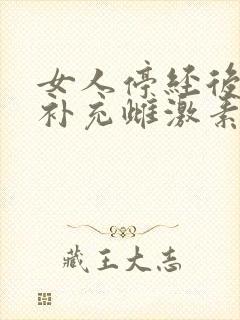 女人停经后
补充雌激素
藏王大志